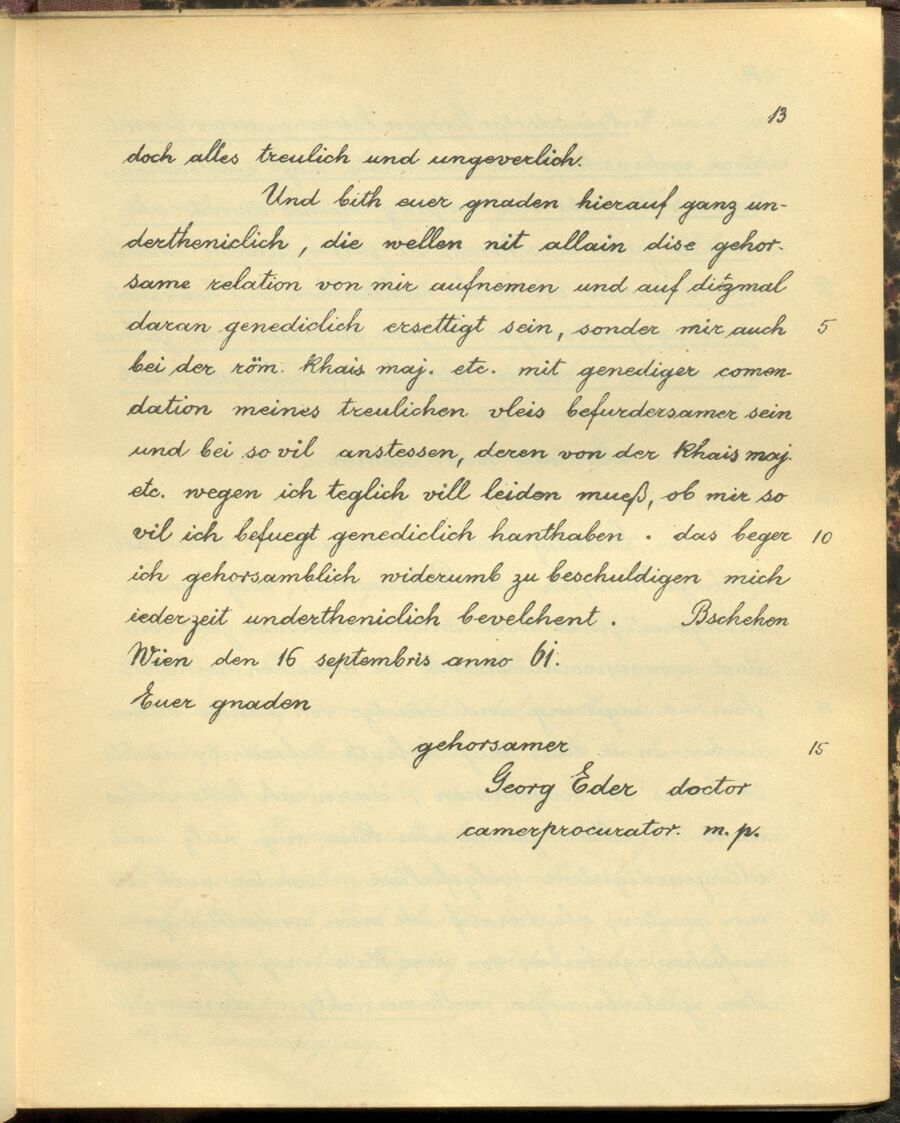 13
doch alles treulich und ungeverlich.
Und bith euer gnaden hierauf ganz un-
dertheniclich, die wellen nit allain dise gehor-
same relation von mir aufnemen und auf ditzmal
daran genediclich ersettigt sein, sonder mir auch 5
bei der röm. khais. maj. etc. mit genediger comen-
dation meines treulichen vleis befurdersamer sein
und bei so vil anstessen, deren von der khais maj.
etc. wegen ich teglich vill leiden mueß, ob mir so
vil ich befuegt genediclich hanthaben. das beger 10
ich gehorsamblich widerumb zu beschuldigen mich
iederzeit undertheniclich bevelchent. Bschehen
Wien den 16 septembris anno 61.
Euer gnaden
gehorsamer 15
Georg Eder doctor
camerprocurator. m. p.